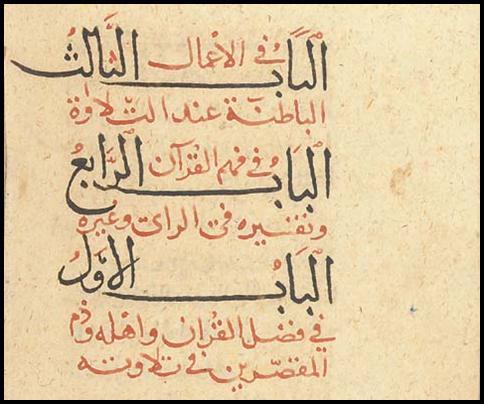 الباب الثالث في الأعمال
الباطنة عند التلاوة
الباب الرابع في فهم القرآن
وتفسيره في الراى وغيره
الباب الأول
في فضل القران واهله وذم
المقصرين في تلاوته